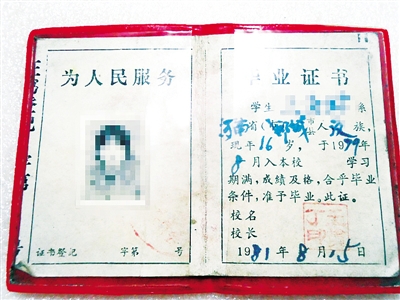 为人民服务
证书登记 字第 号
毕业证书
学生 系
河南省 市 人汉族，
现年16岁，于1979年
8月入本校 学习
期满，成绩及格，合乎毕业
条件，准予毕业。此证。
校名
校长
1981年8月15日